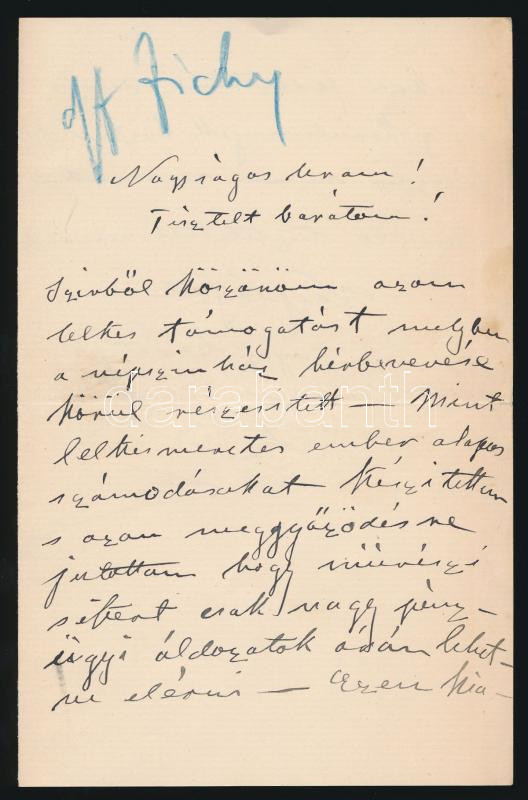 Gf Zichy
Nagyságos Uram!
Tisztelt barátom!
Szivből köszönöm azon
lelkes támogatást melyben
a népszinház bérbevevése
körul részesitett — Mint
lelkismeretes ember alapos
számodásokat készitettem
s azon meggyőződésre
jutottam hogy müvészi
sikert csak nagy pénz-
ügyi áldozatok árán lehet-
ne elérni — Ezen kia-
darabanth